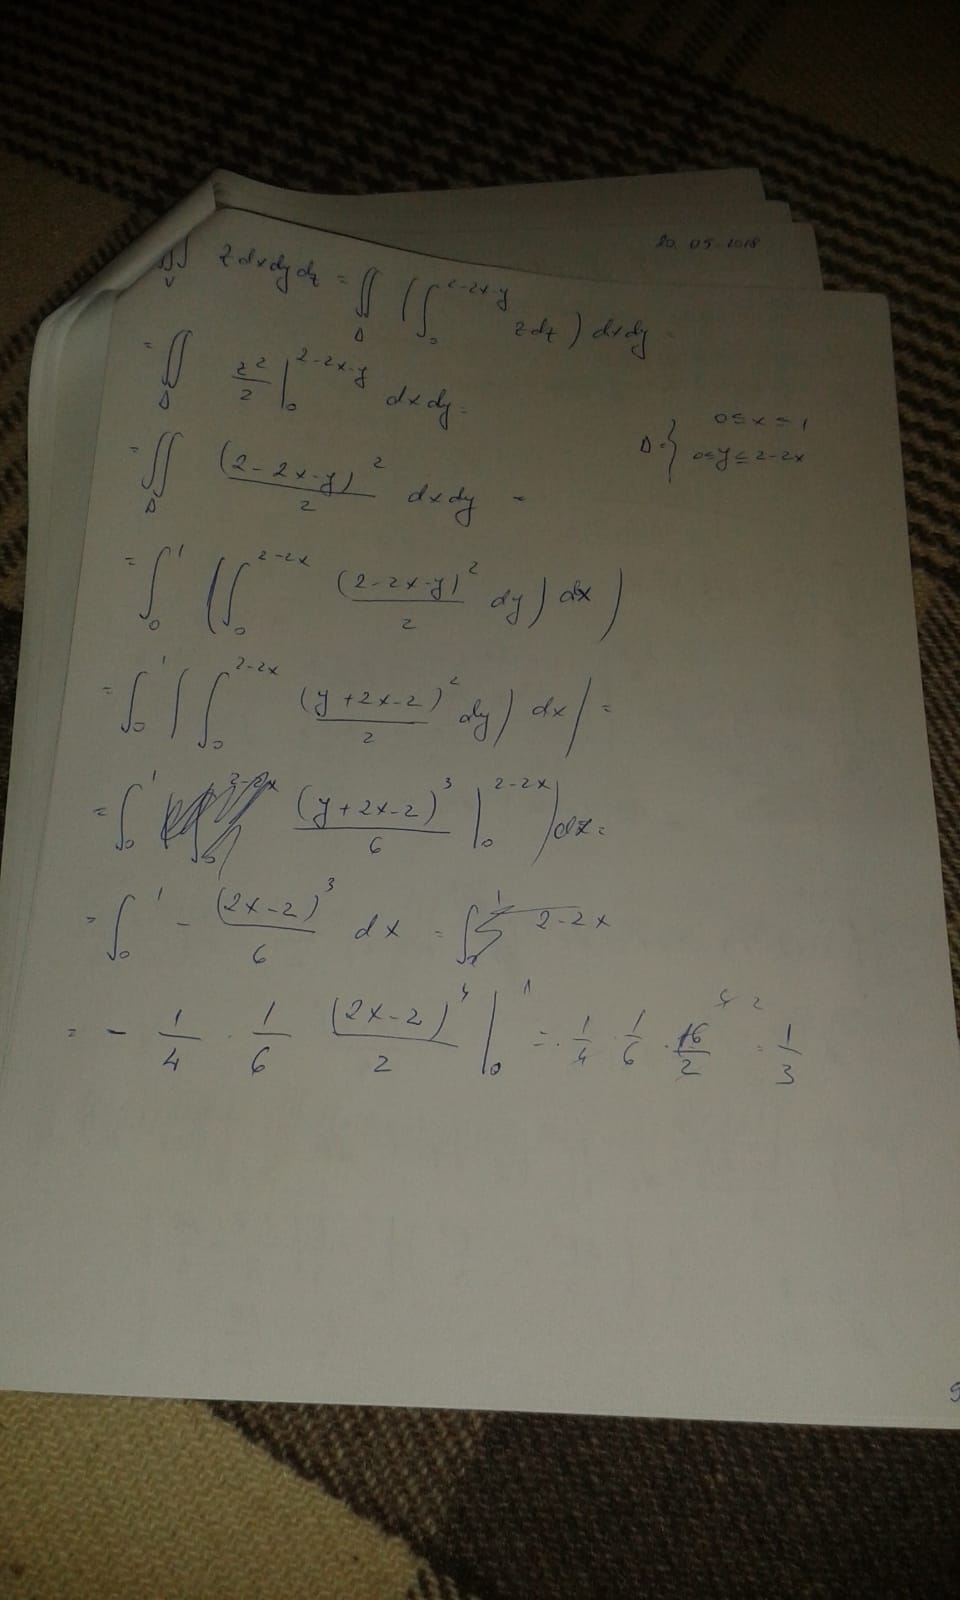 20.05.2018
∭_V z dx dy dz = ∬_D (∫_0^{2-2x-y} z dz) dx dy =
= ∬_D z²/2 |_0^{2-2x-y} dx dy =
D = { 0≤x≤1
0≤y≤2-2x
= ∬_D (2-2x-y)²/2 dx dy =
= ∫_0^1 (∫_0^{2-2x} (2-2x-y)²/2 dy) dx )
= ∫_0^1 ( ∫_0^{2-2x} (y+2x-2)²/2 dy) dx | =
= ∫_0^1 (y+2x-2)³/6 |_0^{2-2x} ) dx =
= ∫_0^1 - (2x-2)³/6 dx = ∫ 2-2x
= - 1/4 · 1/6 (2x-2)⁴/2 |_0^1 = · 1/4 · 1/6 · 16/2 = 1/3